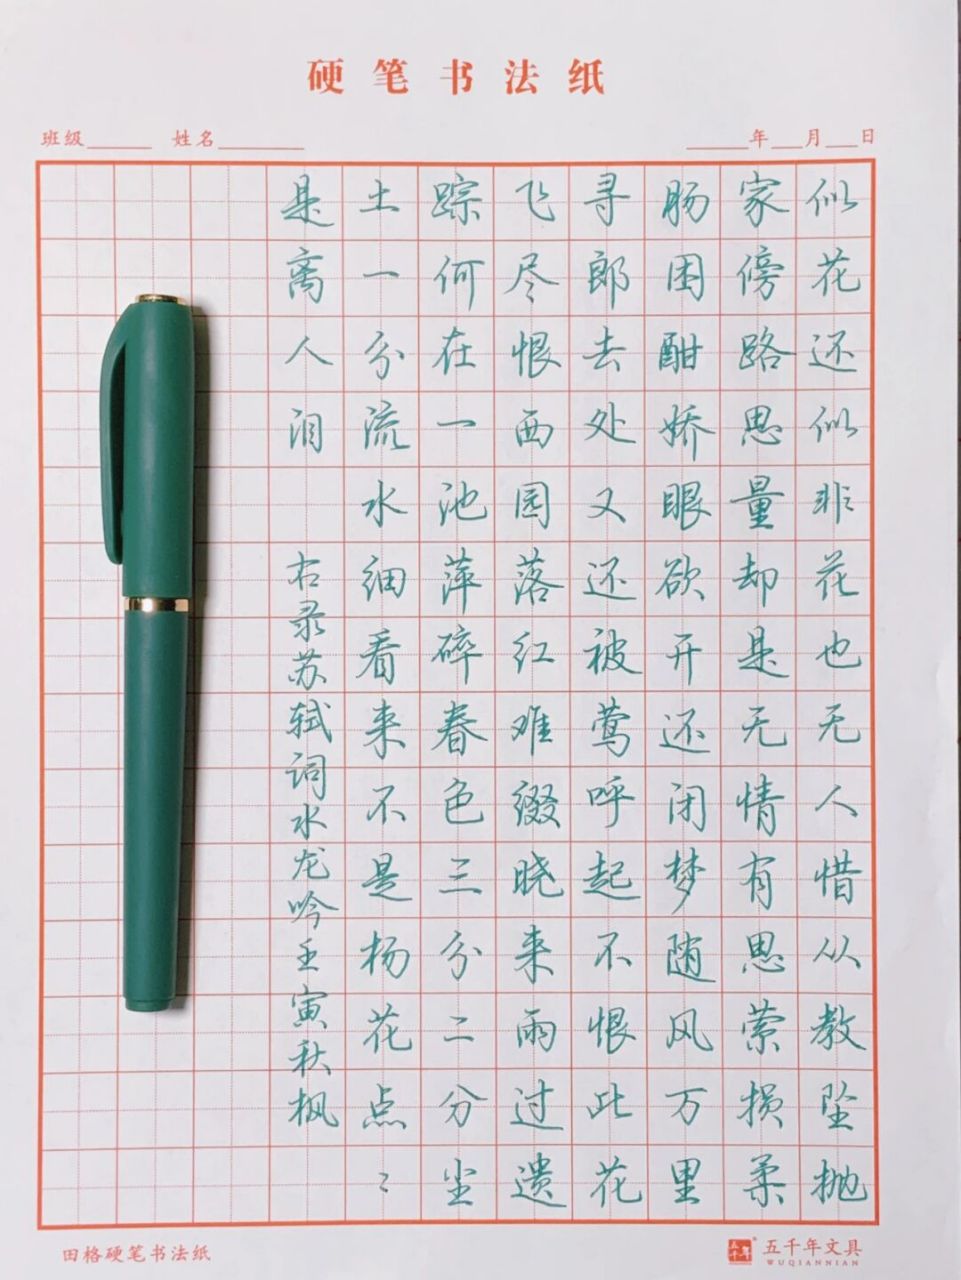 硬笔书法纸
班级 姓名 年 月 日
似花还似非花也无人惜从教坠抛
家傍路思量却是无情有思萦损柔
肠困酣娇眼欲开还闭梦随风万里
寻郎去处又还被莺呼起不恨此花
飞尽恨西园落红难缀晓来雨过遗
踪何在一池萍碎春色三分二分尘
土一分流水细看来不是杨花点〻
是离人泪
右录苏轼词水龙吟壬寅秋枫
田格硬笔书法纸
五千年 五千年文具
WUQIANNIAN